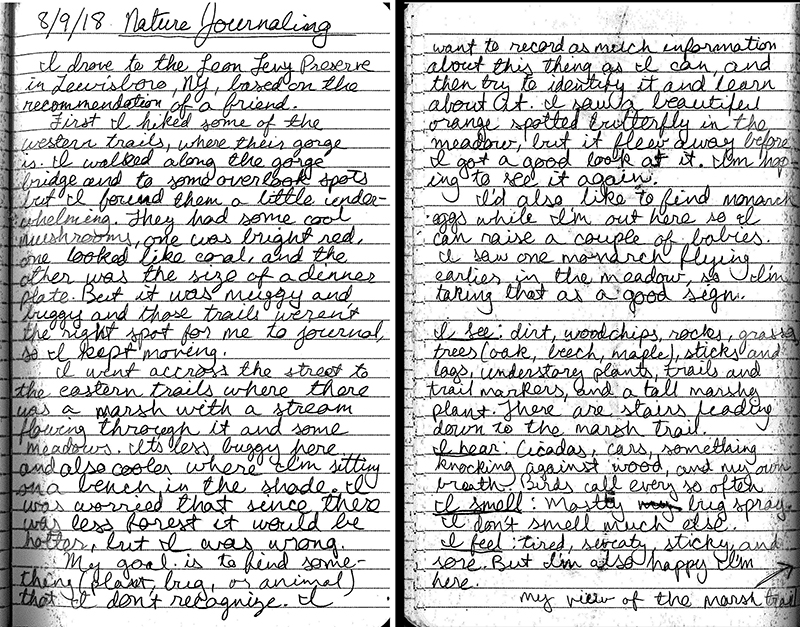 8/9/18 Nature Journaling
I drove to the Leon Levy Preserve
in Lewisboro, NY, based on the
recommendation of a friend.
First I hiked some of the
western trails, where their gorge
is. I walked along the gorge
bridge and to some overlook spots
but I found them a little under-
whelming. They had some cool
mushrooms, one was bright red,
one looked like coral, and the
other was the size of a dinner
plate. But it was muggy and
buggy and those trails weren't
the right spot for me to journal,
so I kept moving.
I went accross the street to
the eastern trails where there
was a marsh with a stream
flowing through it and some
meadows. It's less buggy here
and also cooler where I'm sitting
on a bench in the shade. I
was worried that since there
was less forest it would be
hotter, but I was wrong.
My goal is to find some-
thing (plant, bug, or animal)
that I don't recognize. I
want to record as much information
about this thing as I can, and
then try to identify it and learn
about it. I saw a beautiful
orange spotted butterfly in the
meadow, but it flew away before
I got a good look at it. I'm hop
ing to see it again.
I'd also like to find monarch
eggs while I'm out here so I
can raise a couple of babies.
I saw one monarch flying
earlier in the meadow, so I'm
taking that as a good sign.
I see: dirt, woodchips, rocks, grasses
trees (oak, beech, maple), sticks and
logs, understory plants, trails and
trail markers, and a tall marshy
plant. There are stairs leading
down to the marsh trail.
I hear: Cicadas, cars, something
knocking against wood, and my own
breath. Birds call every so often
I smell: Mostly my bug spray.
I don't smell much else.
I feel: tired, sweaty, sticky, and
sore. But I'm also happy I'm
here.
my view of the marsh trail